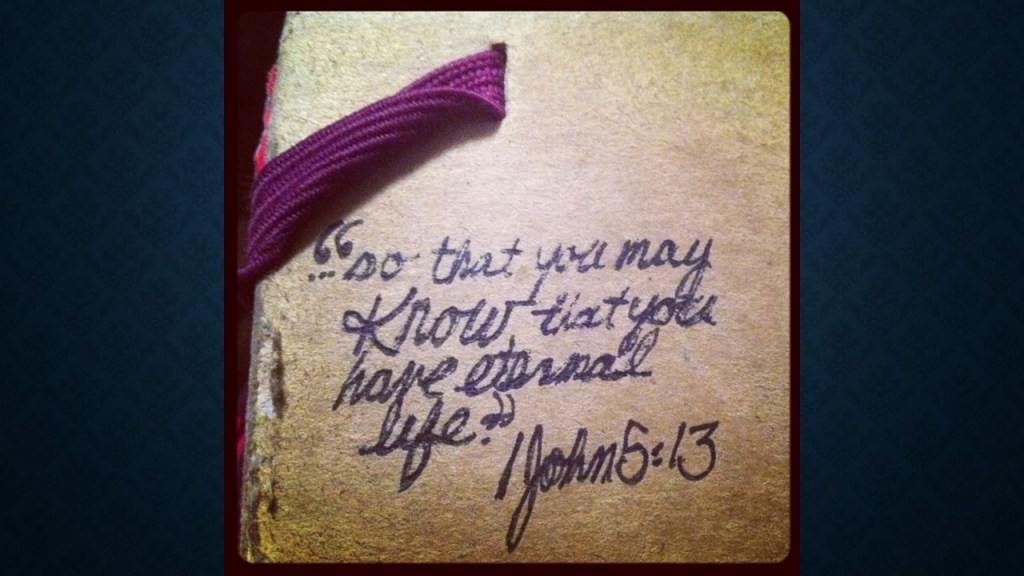 ..."so that you may
Know, that you
have eternal
life."
1 John 5:13